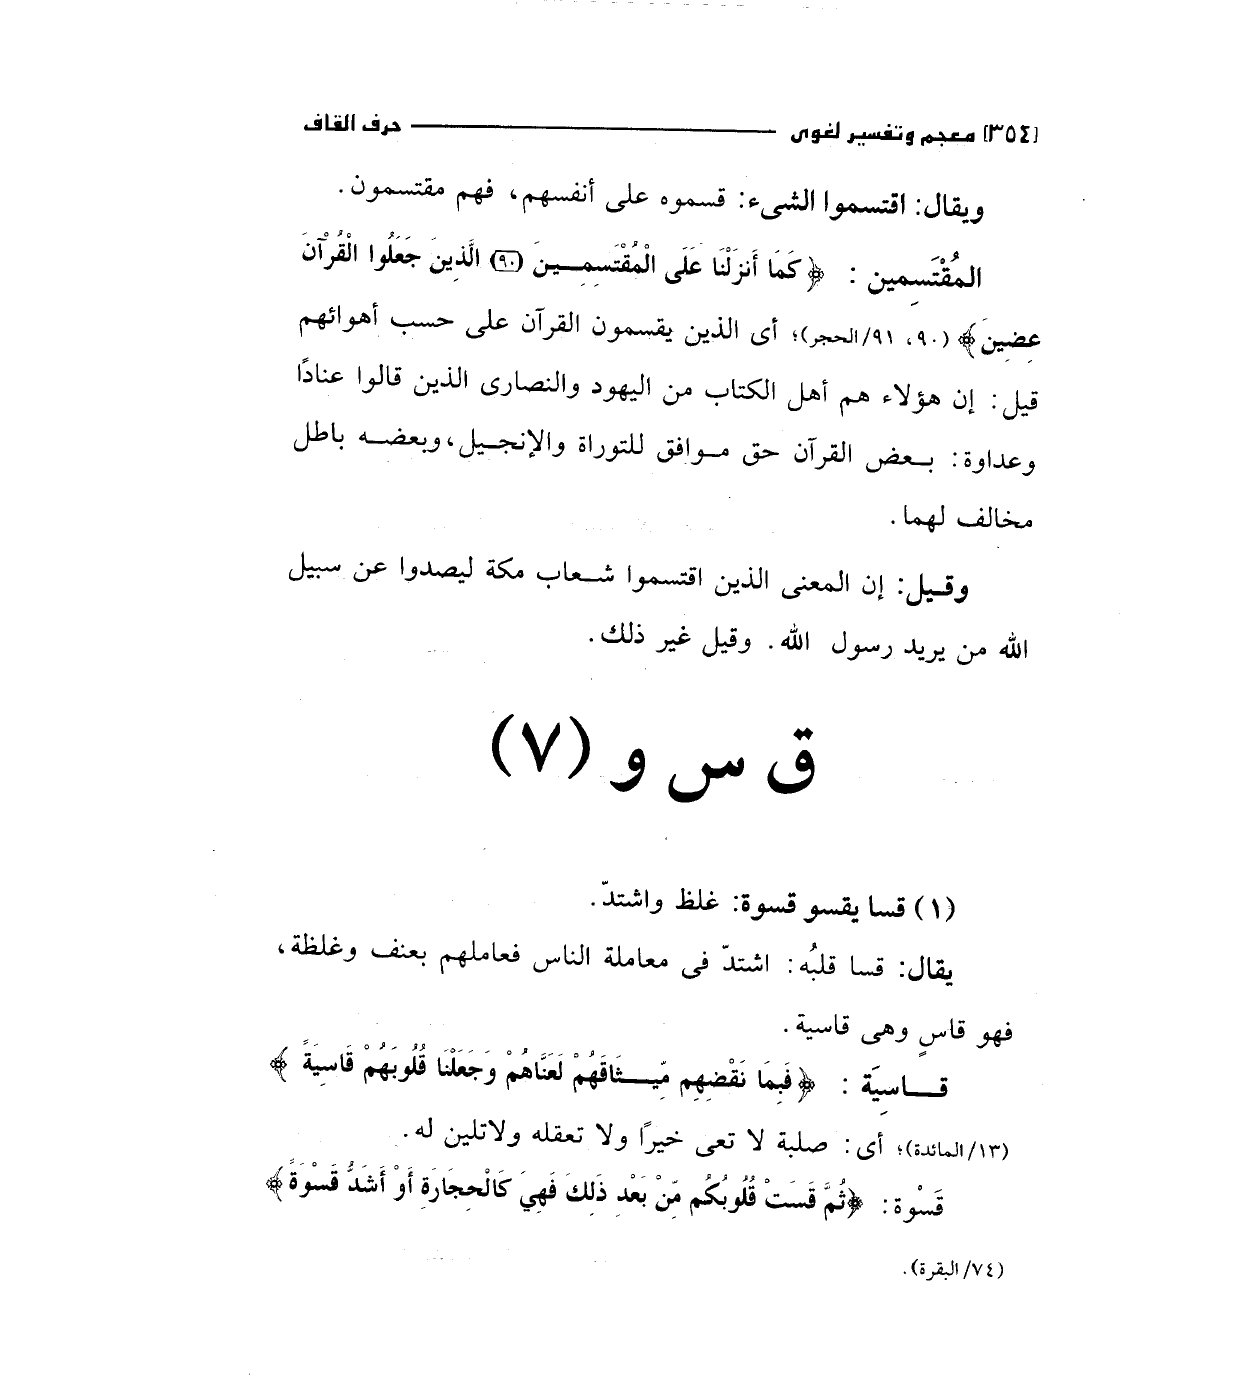 [٣٥٤] معجم وتفسير لغوى ــــــ حرف القاف
ويقال: اقتسموا الشىء: قسموه على أنفسهم، فهم مقتسمون.
المُقْتَسِمين : ﴿ كَمَا أَنزَلْنَا عَلَى الْمُقْتَسِمِينَ (٩٠) الَّذِينَ جَعَلُوا الْقُرْآنَ
عِضِينَ﴾ (٩٠، ٩١/الحجر)؛ أى الذين يقسمون القرآن على حسب أهوائهم
قيل: إن هؤلاء هم أهل الكتاب من اليهود والنصارى الذين قالوا عنادًا
وعداوة: بعض القرآن حق موافق للتوراة والإنجيل، وبعضه باطل
مخالف لهما.
وقيل: إن المعنى الذين اقتسموا شعاب مكة ليصدوا عن سبيل
الله من يريد رسول الله. وقيل غير ذلك.
ق س و (٧)
(١) قسا يقسو قسوة: غلظ واشتدّ.
يقال: قسا قلبُه: اشتدّ فى معاملة الناس فعاملهم بعنف وغلظة،
فهو قاسٍ وهى قاسية.
قاسِيَة : ﴿ فَبِمَا نَقْضِهِم مِّيثَاقَهُمْ لَعَنَّاهُمْ وَجَعَلْنَا قُلُوبَهُمْ قَاسِيَةً ﴾
(١٣/المائدة)؛ أى: صلبة لا تعى خيرًا ولا تعقله ولاتلين له.
قَسْوة: ﴿ثُمَّ قَسَتْ قُلُوبُكُم مِّنْ بَعْدِ ذَلِكَ فَهِيَ كَالْحِجَارَةِ أَوْ أَشَدُّ قَسْوَةً﴾
(٧٤/ البقرة).